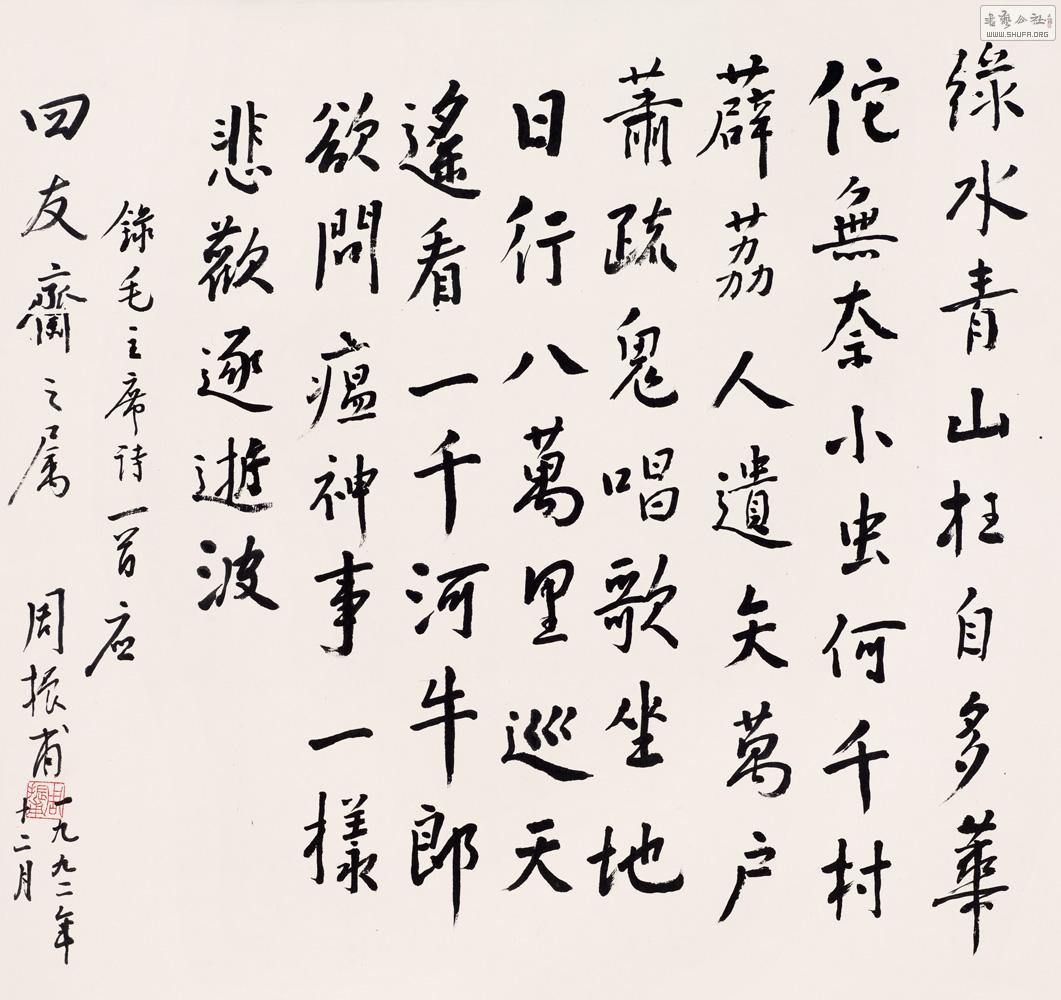 綠水青山枉自多華
佗無奈小虫何千村
薜荔人遺矢萬戶
蕭疏鬼唱歌坐地
日行八萬里巡天
遙看一千河牛郎
欲問瘟神事一樣
悲歡逐逝波
錄毛主席詩一首应
四友齋之属 周振甫
一九九二年
十二月
書藝公社
WWW.SHUFA.ORG